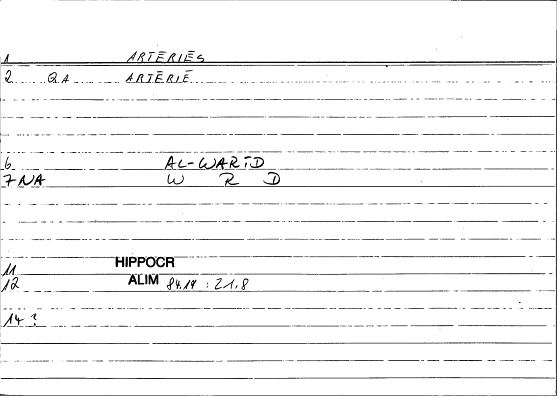 1 ARTĒRIĒS
2 QA ARTĒRIĒ
6 AL-WARĪD
7 NA W R D
11 HIPPOCR
12 ALIM 84.14 : 21.8
14 ?